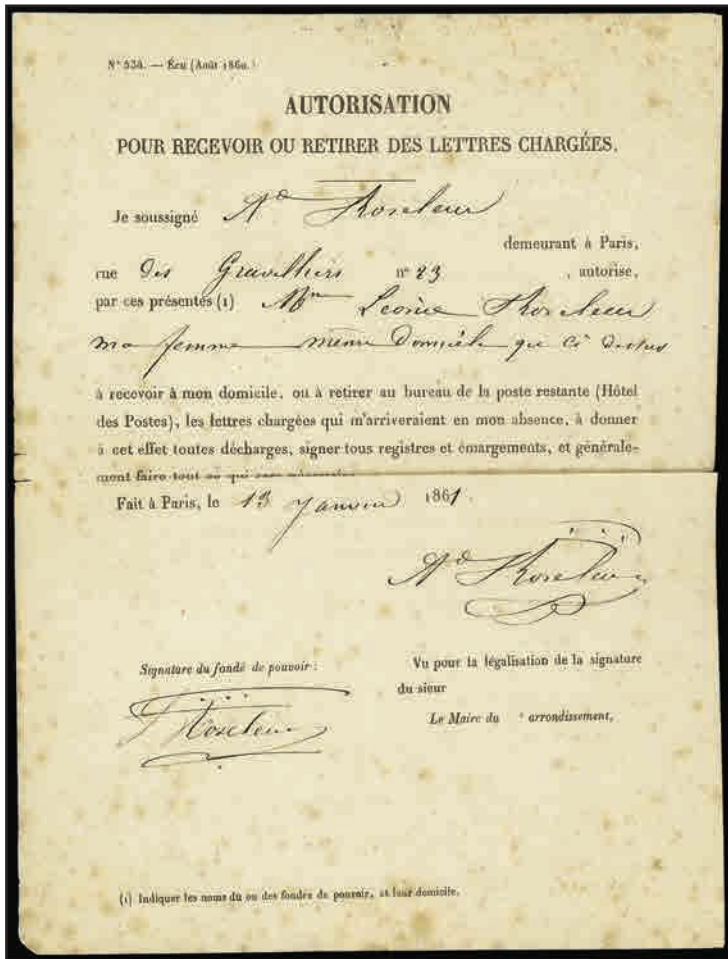 N° 534. — Écu (Août 1860.)
AUTORISATION
POUR RECEVOIR OU RETIRER DES LETTRES CHARGÉES.
Je soussigné Ad Roseleur
demeurant à Paris,
rue des Gravilliers n° 23 , autorise,
par ces présentes (1) Mme Léonie Roseleur
ma femme même domicile que ci dessus
à recevoir à mon domicile, ou à retirer au bureau de la poste restante (Hôtel
des Postes), les lettres chargées qui m'arriveraient en mon absence, à donner
à cet effet toutes décharges, signer tous registres et émargements, et générale-
ment faire tout ce qui sera nécessaire.
Fait à Paris, le 13 Janvier 1861.
Ad Roseleur
Signature du fondé de pouvoir :
Roseleur
Vu pour la légalisation de la signature
du sieur
Le Maire du e arrondissement,
(1) Indiquer les noms du ou des fondés de pouvoir, et leur domicile.